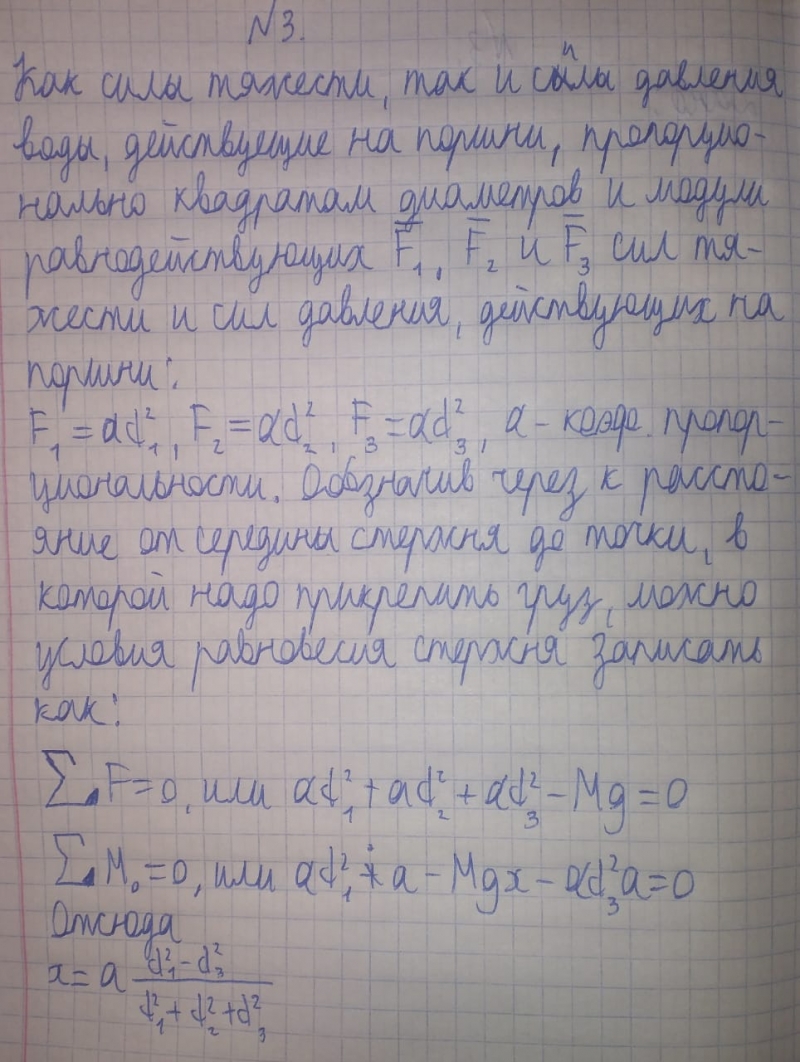 №3.
Как силы тяжести, так и силы давления
воды, действующие на поршни, пропорцио-
нально квадратам диаметров и модули
равнодействующих F̅₁, F̅₂ и F̅₃ сил тя-
жести и сил давления, действующих на
поршни:
F₁ = αd₁², F₂ = αd₂², F₃ = αd₃², α - коэф. пропор-
циональности. Обозначив через к рассто-
яние от середины стержня до точки, в
которой надо прикрепить груз, можно
условия равновесия стержня записать
как:
∑F = 0, или αd₁² + αd₂² + αd₃² - Mg = 0
∑M₀ = 0, или αd₁² * a - Mgx - αd₃²a = 0
Отсюда
x = a (d₁² - d₃²)/(d₁² + d₂² + d₃²)